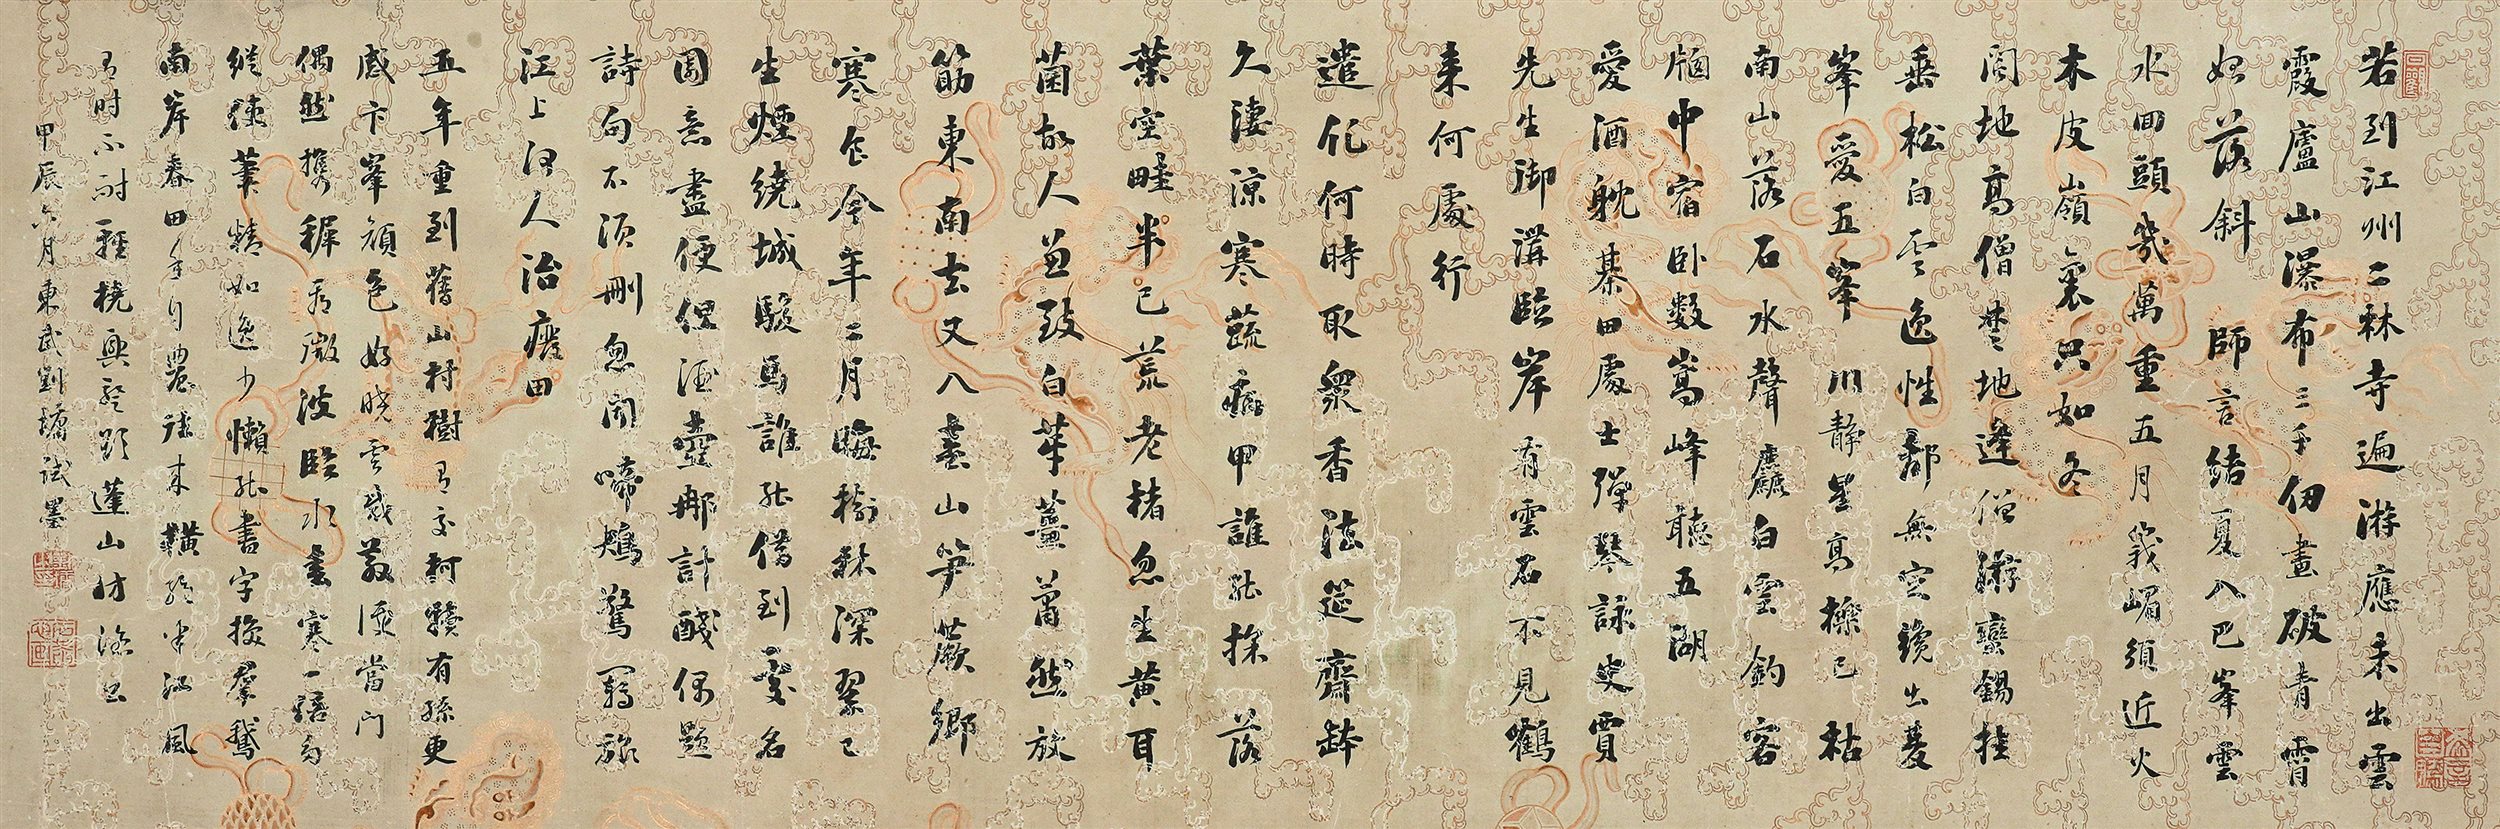 若到江州二林寺遍游應未出雲
霞廬山瀑布三千仞畫破青霄
始落斜 師言結夏入巴峯雲
水回頭幾萬重五月峨嵋須近火
木皮嶺裏只如冬
閣地高僧梵地逢僧游蠻錫挂
垂松白雲逸性都無定纔出爰
峯愛五峯 川靜星高櫟已枯
南山落石水聲麤白雲釣客
窗中宿卧數嵩峰聽五湖
愛酒躭棊田處士彈琴詠史賈
先生御溝臨岸有雲石不見鶴
來何處行
遣化何時取衆香法筵齋鉢
久淒涼寒蔬病甲誰能採落
葉空畦半已荒老楮忽生黃耳
菌故人兼致白芽薑蕭然放
筯東南去又入春山筍蕨鄉
寒乍今年二月晦樹林深翠已
生煙繞城駿馬誰能借到處名
園意盡便但酒壺那計醆偶題
詩句不須刪忽聞啼鴂驚羈旅
江上何人治廢田
五年重到舊山村樹有交柯犢有孫更
感卞峯顔色好曉雲纔散便當門
偶然攜稚看微波臨水春寒一倍多
縱使筆精如逸少懶能書字換羣鵝
南岸春田手自農往來橫絶半江風
有時不耐輕橈興暫欲蓬山訪洛公
甲辰六月東武劉墉試墨